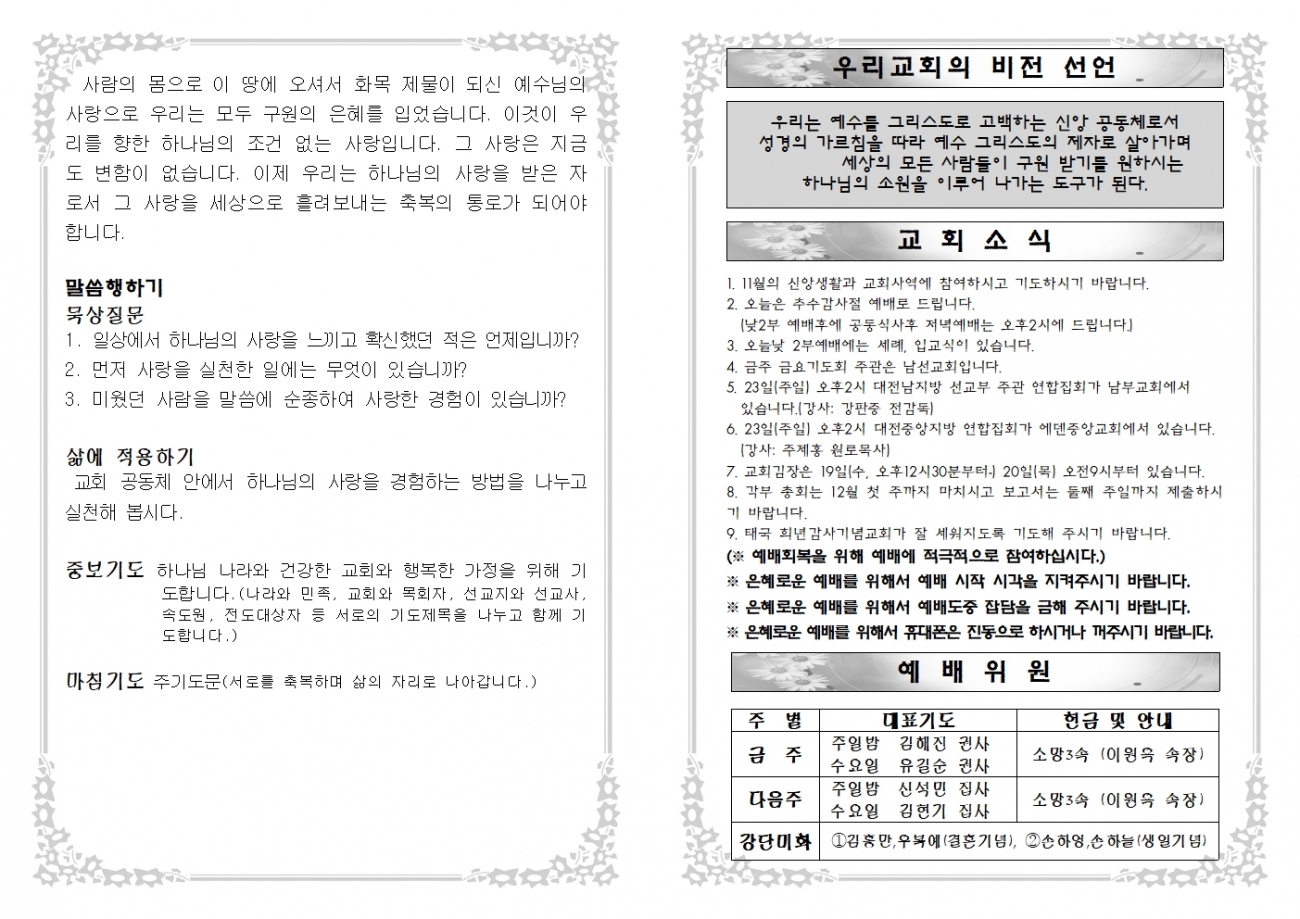 사람의 몸으로 이 땅에 오셔서 화목 제물이 되신 예수님의
사랑으로 우리는 모두 구원의 은혜를 입었습니다. 이것이 우
리를 향한 하나님의 조건 없는 사랑입니다. 그 사랑은 지금
도 변함이 없습니다. 이제 우리는 하나님의 사랑을 받은 자
로서 그 사랑을 세상으로 흘려보내는 축복의 통로가 되어야
합니다.
말씀행하기
묵상질문
1. 일상에서 하나님의 사랑을 느끼고 확신했던 적은 언제입니까?
2. 먼저 사랑을 실천한 일에는 무엇이 있습니까?
3. 미웠던 사람을 말씀에 순종하여 사랑한 경험이 있습니까?
삶에 적용하기
교회 공동체 안에서 하나님의 사랑을 경험하는 방법을 나누고
실천해 봅시다.
중보기도 하나님 나라와 건강한 교회와 행복한 가정을 위해 기
도합니다.(나라와 민족, 교회와 목회자, 선교지와 선교사,
속도원, 전도대상자 등 서로의 기도제목을 나누고 함께 기
도합니다.)
마침기도 주기도문(서로를 축복하며 삶의 자리로 나아갑니다.)
우리교회의 비전 선언
우리는 예수를 그리스도로 고백하는 신앙 공동체로서
성경의 가르침을 따라 예수 그리스도의 제자로 살아가며
세상의 모든 사람들이 구원 받기를 원하시는
하나님의 소원을 이루어 나가는 도구가 된다.
교 회 소 식
1. 11월의 신앙생활과 교회사역에 참여하시고 기도하시기 바랍니다.
2. 오늘은 추수감사절 예배로 드립니다.
(낮2부 예배후에 공동식사후 저녁예배는 오후2시에 드립니다.)
3. 오늘낮 2부예배에는 세례, 입교식이 있습니다.
4. 금주 금요기도회 주관은 남선교회입니다.
5. 23일(주일) 오후2시 대전남지방 선교부 주관 연합집회가 남부교회에서
있습니다.(강사: 강판중 전감독)
6. 23일(주일) 오후2시 대전중앙지방 연합집회가 에덴중앙교회에서 있습니다.
(강사: 주제홍 원로목사)
7. 교회김장은 19일(수, 오후12시30분부터.) 20일(목) 오전9시부터 있습니다.
8. 각부 총회는 12월 첫 주까지 마치시고 보고서는 둘째 주일까지 제출하시
기 바랍니다.
9. 태국 희년감사기념교회가 잘 세워지도록 기도해 주시기 바랍니다.
(※ 예배회복을 위해 예배에 적극적으로 참여하십시다.)
※ 은혜로운 예배를 위해서 예배 시작 시각을 지켜주시기 바랍니다.
※ 은혜로운 예배를 위해서 예배도중 잡담을 금해 주시기 바랍니다.
※ 은혜로운 예배를 위해서 휴대폰은 진동으로 하시거나 꺼주시기 바랍니다.
예 배 위 원
주 별 대표기도 헌금 및 안내
금 주 주일밤 김해진 권사 소망3속 (이원옥 속장)
수요일 유길순 권사
다음주 주일밤 신석민 집사 소망3속 (이원옥 속장)
수요일 김현기 집사
강단미화 ①김홍만,우복예(결혼기념), ②손하영,손하늘(생일기념)